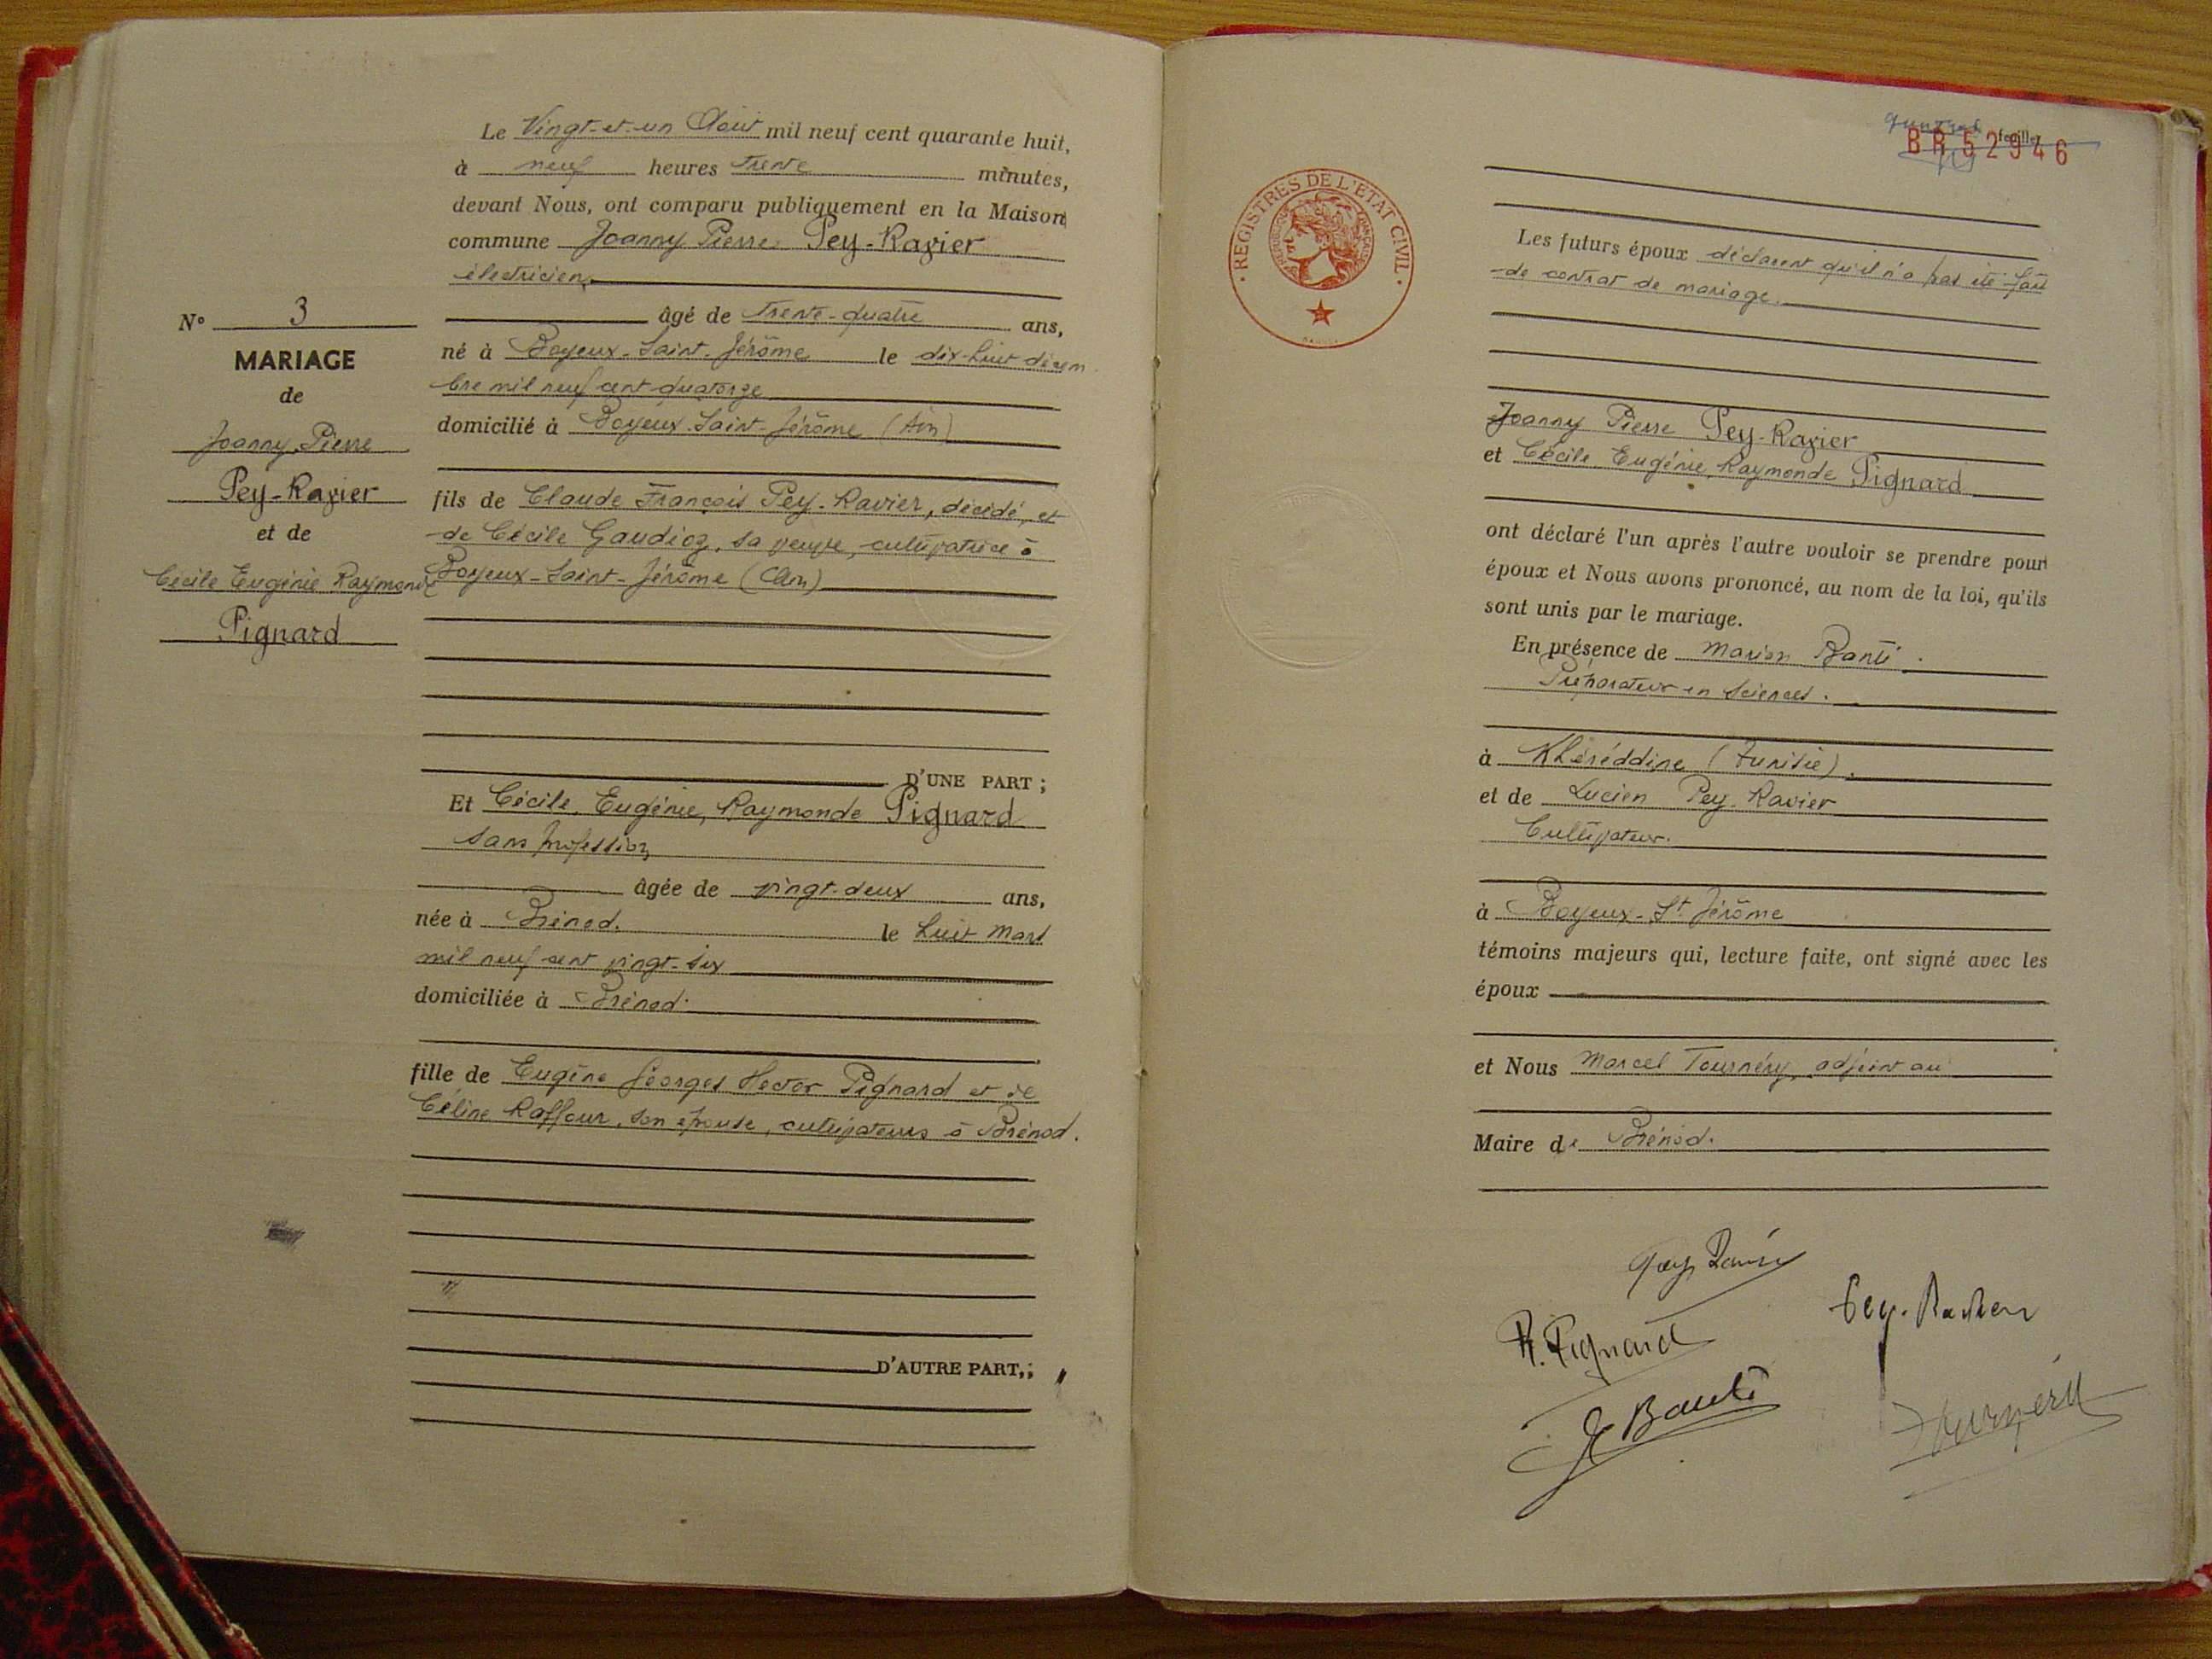 Le Vingt-et-un Août mil neuf cent quarante huit,
à neuf heures trente minutes,
devant Nous, ont comparu publiquement en la Maison
commune Joanny Pierre Pey-Ravier
électricien
âgé de trente-quatre ans,
né à Boyeux-Saint-Jérôme le dix-huit décem
bre mil neuf cent quatorze
domicilié à Boyeux-Saint-Jérôme (Ain)
fils de Claude François Pey-Ravier, décédé, et
de Cécile Gaudioz, sa veuve, cultivatrice à
Boyeux-Saint-Jérôme (Ain)
D'UNE PART ;
Et Cécile, Eugénie, Raymonde Pignard
sans profession
âgée de vingt-deux ans,
née à Brénod. le huit Mars
mil neuf cent vingt-six
domiciliée à Brénod.
fille de Eugène Georges Hector Pignard et de
Céline Raffour, son épouse, cultivateurs à Brénod.
D'AUTRE PART,;
N° 3
MARIAGE
de
Joanny, Pierre
Pey-Ravier
et de
Cécile Eugénie Raymonde
Pignard
feuillet
BR 52946
REGISTRES DE L'ETAT CIVIL
REPUBLIQUE FRANÇAISE
Les futurs époux déclarent qu'il n'a pas été fait
de contrat de mariage.
Joanny Pierre Pey-Ravier
et Cécile Eugénie, Raymonde Pignard
ont déclaré l'un après l'autre vouloir se prendre pour
époux et Nous avons prononcé, au nom de la loi, qu'ils
sont unis par le mariage.
En présence de Marion Banti.
Préparateur en Sciences.
à Khéréddine (Tunisie).
et de Lucien Pey-Ravier
Cultivateur.
à Boyeux-St Jérôme
témoins majeurs qui, lecture faite, ont signé avec les
époux
et Nous Marcel Tournéry, adjoint au
Maire de Brénod.
Pey Ravier
Pey-Ravier
R. Pignard
Banti
Tournéry